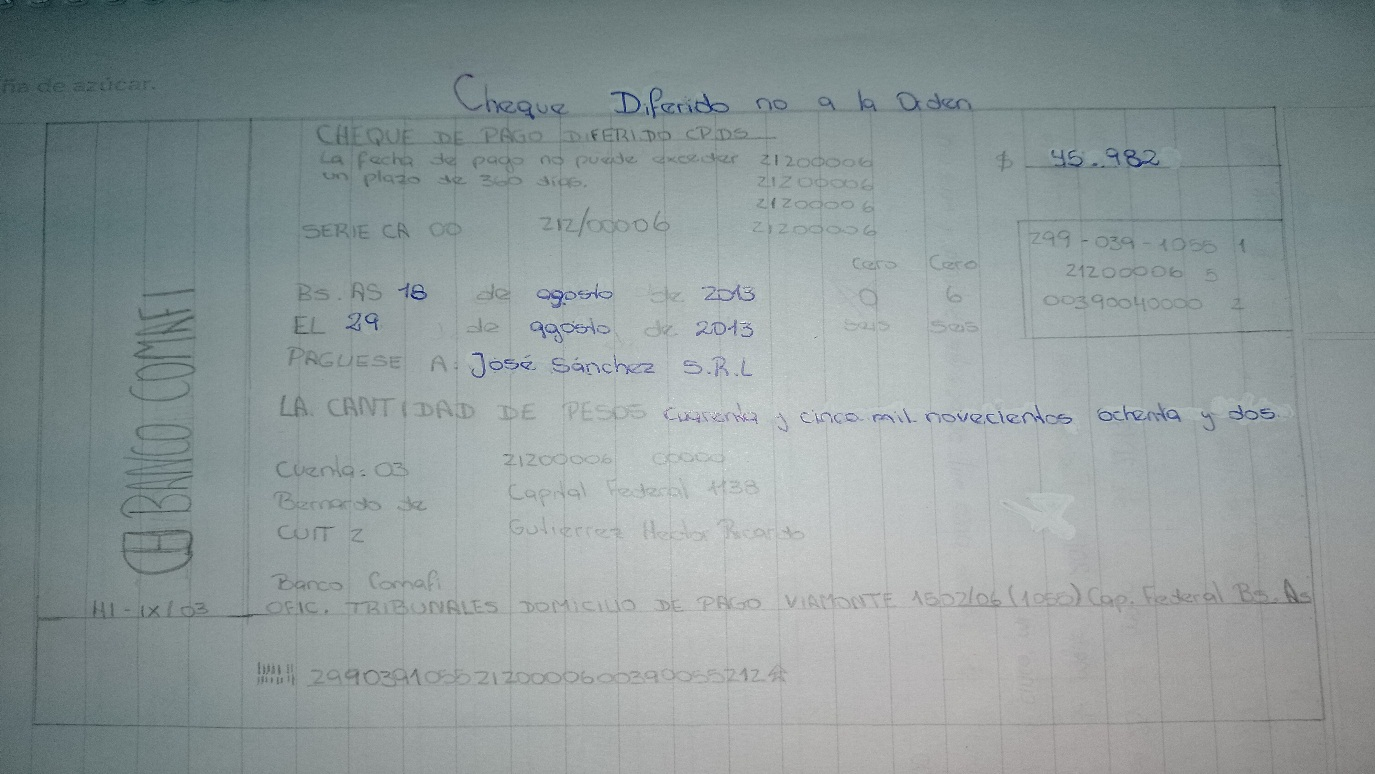 ña de azúcar.
Cheque Diferido no a la Orden
CHEQUE DE PAGO DIFERIDO CPDS
La fecha de pago no puede exceder 21200006 $ 45.982
un plazo de 360 dias. 21200006
21200006
SERIE CA 00 212/00006 21200006
299-039-1055 1
cero Cero 21200006 5
Bs. AS 18 de agosto de 2013 0 6 00390040000 2
EL 29 de agosto de 2013 seis seis
PAGUESE A: José Sánchez S.R.L
LA CANTIDAD DE PESOS cuarenta y cinco mil novecientos ochenta y dos
Cuenta: 03 21200006 00000
Bernardo de Capital Federal 1138
CUIT 2 Gutierrez Hector Ricardo
BANCO COMAFI
Banco Comafi
HI-IX/03 OFIC. TRIBUNALES DOMICILIO DE PAGO VIAMONTE 1502/06 (1050) Cap. Federal Bs. As
29903910552120000600390055212